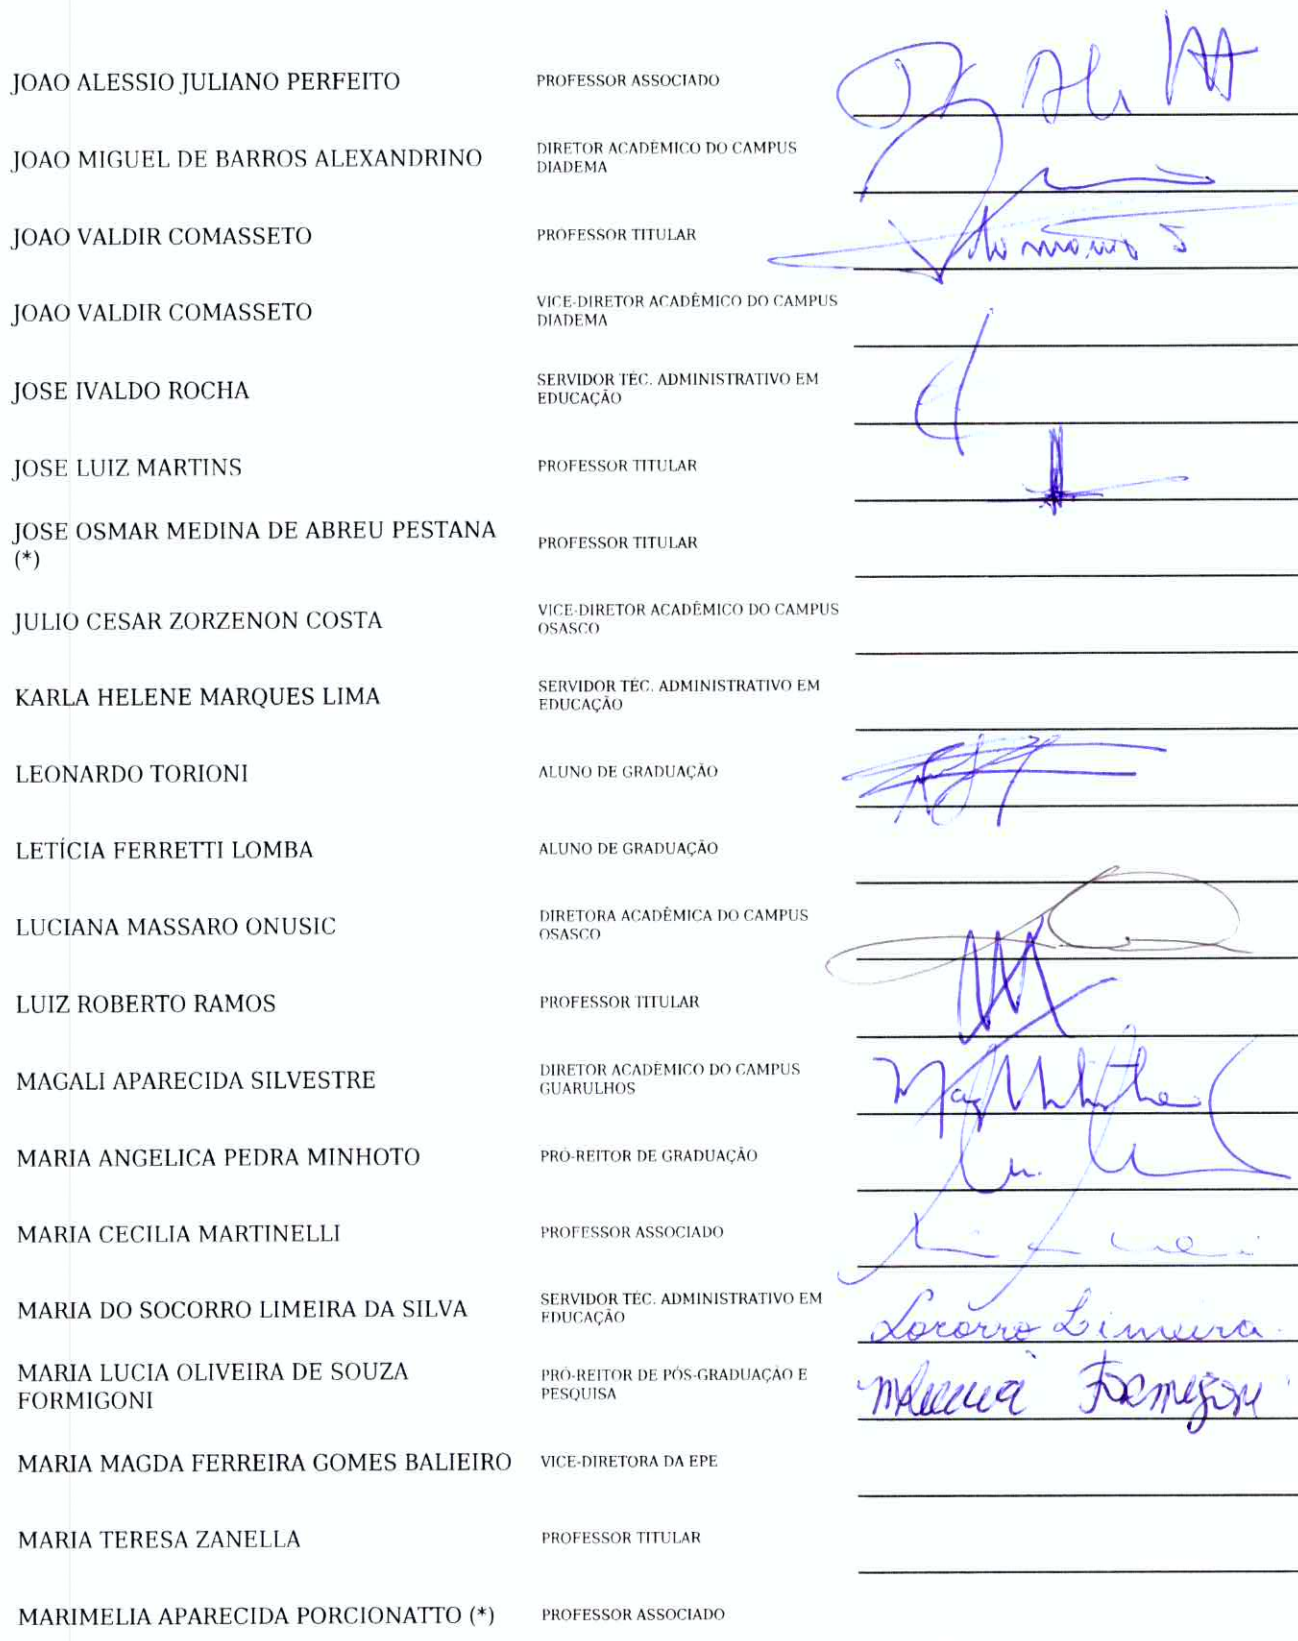 JOAO ALESSIO JULIANO PERFEITO PROFESSOR ASSOCIADO
JOAO MIGUEL DE BARROS ALEXANDRINO DIRETOR ACADÊMICO DO CAMPUS
DIADEMA
JOAO VALDIR COMASSETO PROFESSOR TITULAR
JOAO VALDIR COMASSETO VICE-DIRETOR ACADÊMICO DO CAMPUS
DIADEMA
JOSE IVALDO ROCHA SERVIDOR TÉC. ADMINISTRATIVO EM
EDUCAÇÃO
JOSE LUIZ MARTINS PROFESSOR TITULAR
JOSE OSMAR MEDINA DE ABREU PESTANA
(*) PROFESSOR TITULAR
JULIO CESAR ZORZENON COSTA VICE-DIRETOR ACADÊMICO DO CAMPUS
OSASCO
KARLA HELENE MARQUES LIMA SERVIDOR TÉC. ADMINISTRATIVO EM
EDUCAÇÃO
LEONARDO TORIONI ALUNO DE GRADUAÇÃO
LETÍCIA FERRETTI LOMBA ALUNO DE GRADUAÇÃO
LUCIANA MASSARO ONUSIC DIRETORA ACADÊMICA DO CAMPUS
OSASCO
LUIZ ROBERTO RAMOS PROFESSOR TITULAR
MAGALI APARECIDA SILVESTRE DIRETOR ACADÊMICO DO CAMPUS
GUARULHOS
MARIA ANGELICA PEDRA MINHOTO PRÓ-REITOR DE GRADUAÇÃO
MARIA CECILIA MARTINELLI PROFESSOR ASSOCIADO
MARIA DO SOCORRO LIMEIRA DA SILVA SERVIDOR TÉC. ADMINISTRATIVO EM
EDUCAÇÃO Socorro Limeira
MARIA LUCIA OLIVEIRA DE SOUZA PRÓ-REITOR DE PÓS-GRADUAÇÃO E
FORMIGONI PESQUISA Formigoni
MARIA MAGDA FERREIRA GOMES BALIEIRO VICE-DIRETORA DA EPE
MARIA TERESA ZANELLA PROFESSOR TITULAR
MARIMELIA APARECIDA PORCIONATTO (*) PROFESSOR ASSOCIADO